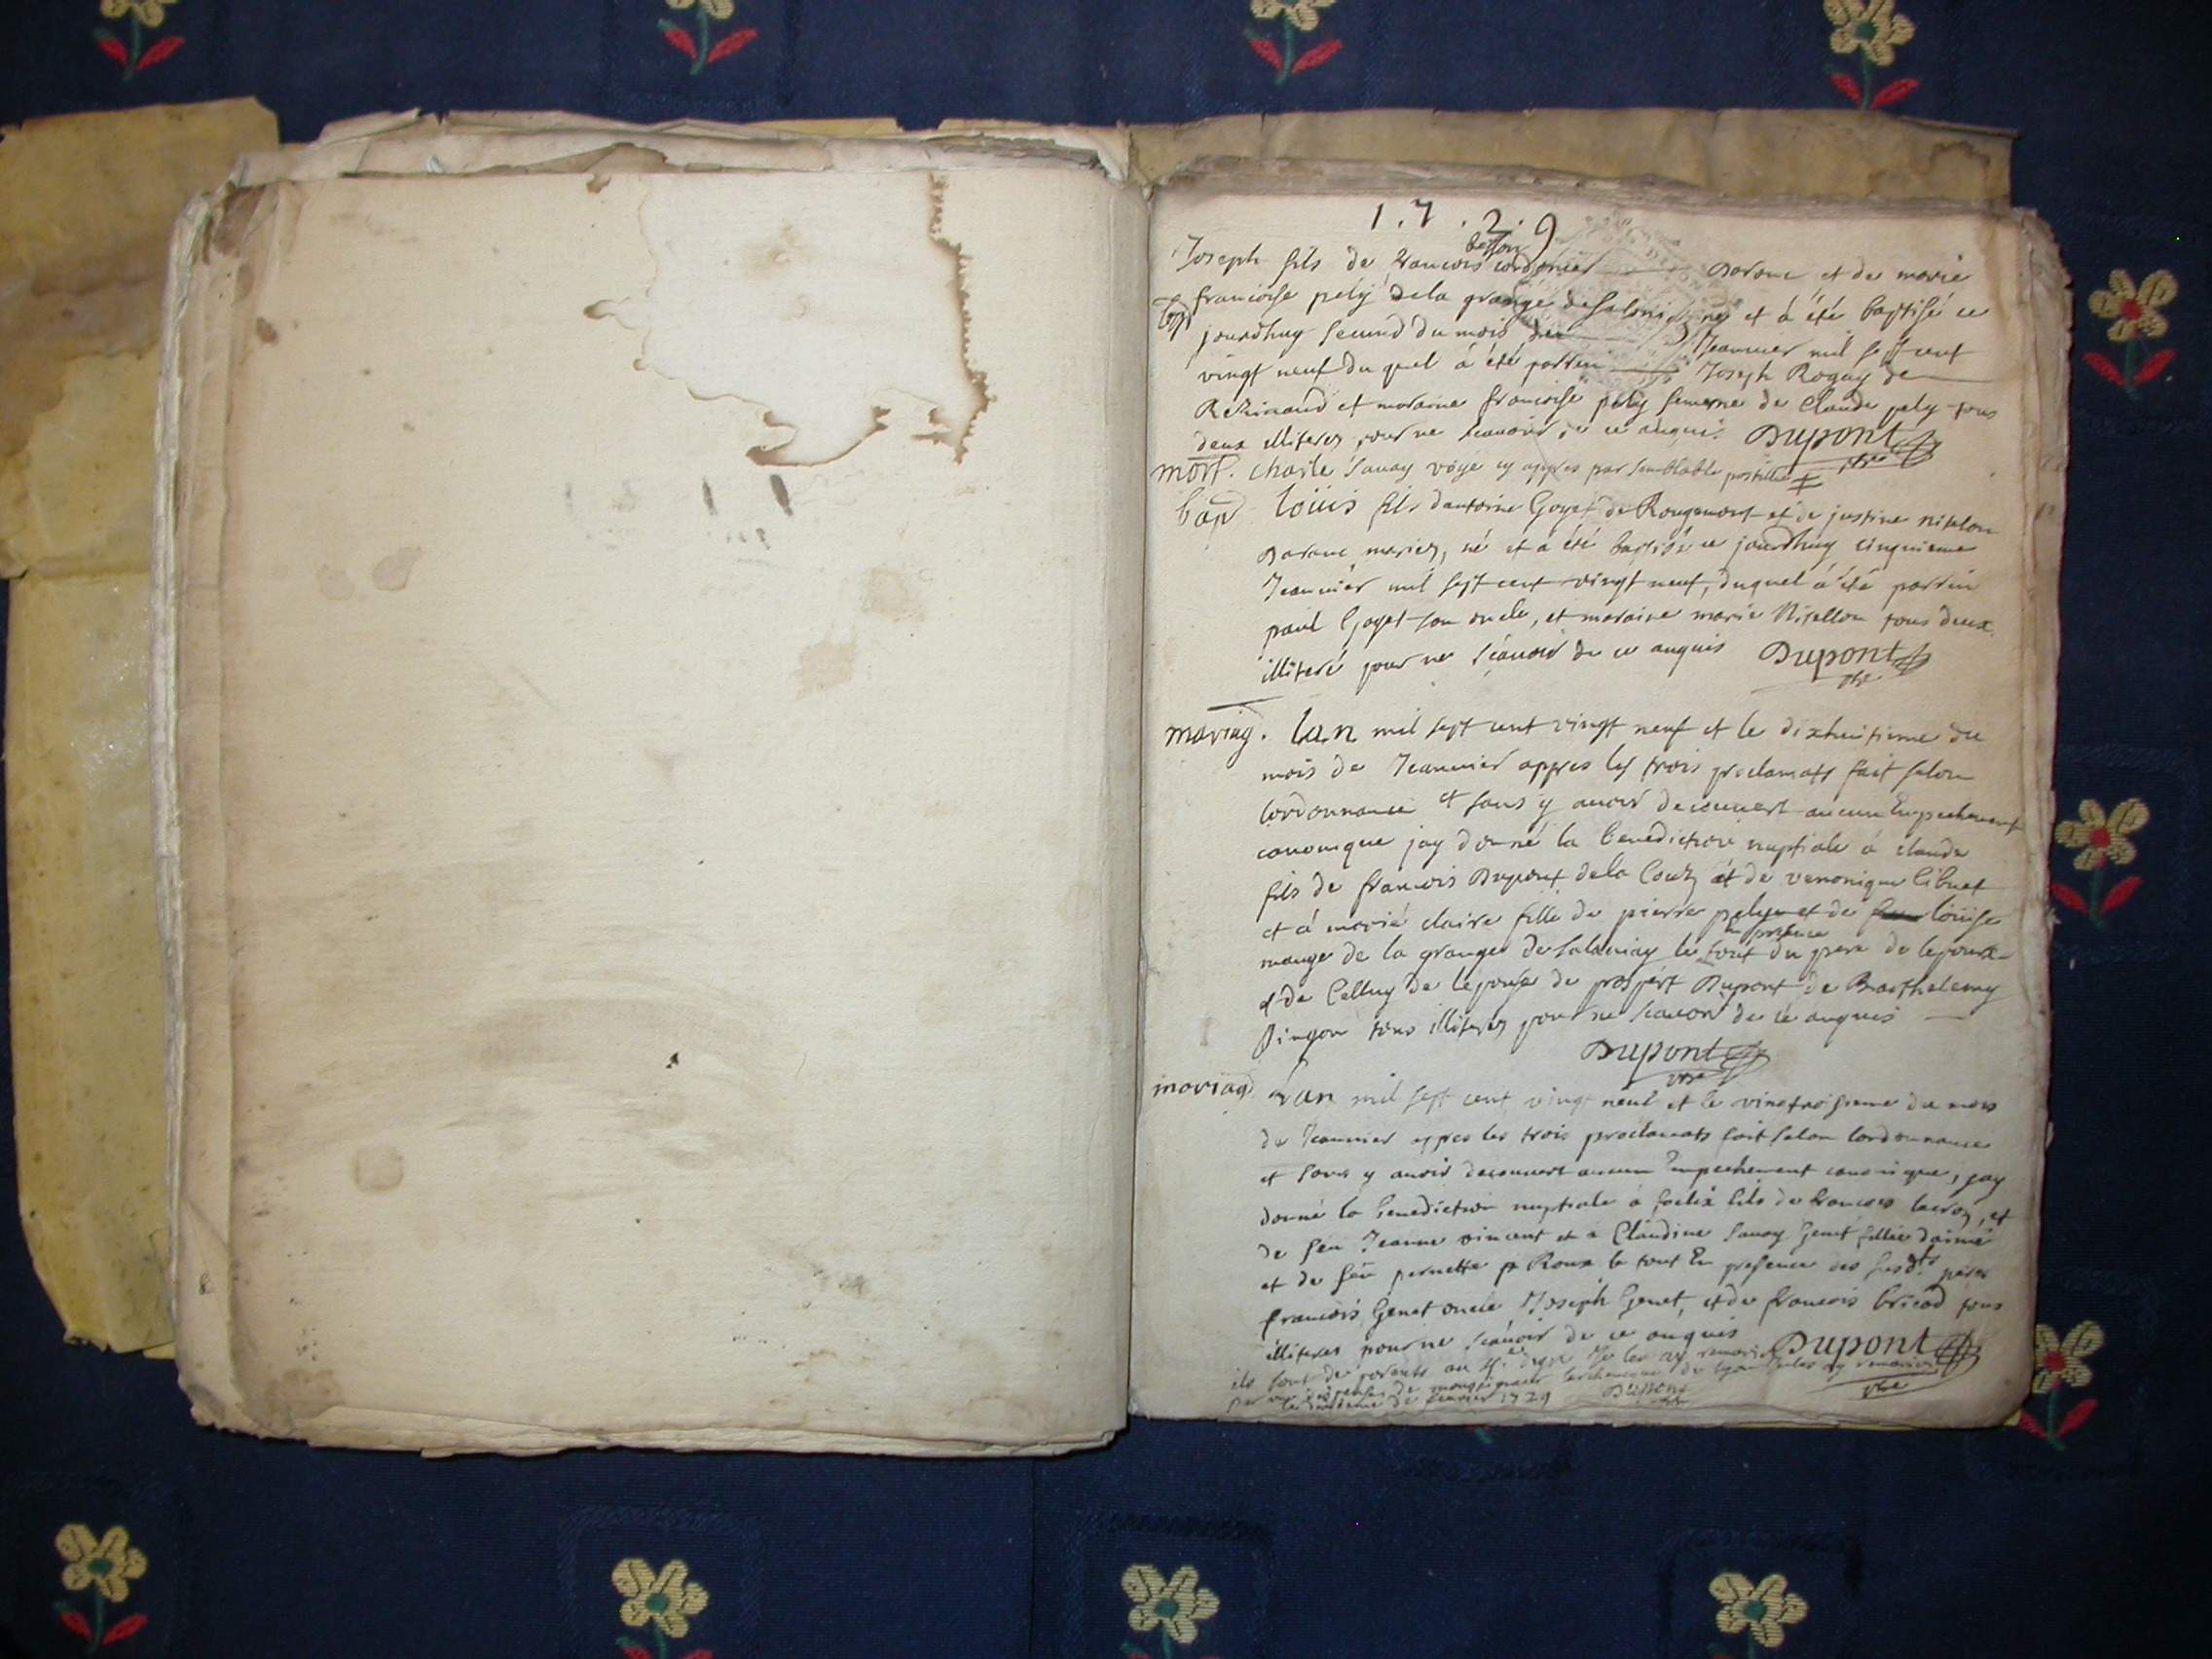 1.7.2.9
besson
Joseph fils de francois cordonier Darenc et de marie
bap
francoise pely dela grange de et à été baptisé ce
jourdhuy second du mois de Jeanvier mil sept cent
vingt neuf du quel à été parrin Joseph Roguy de
et maraine francoise pely femme de Claude pely tous
deux illiteres pour ne scavoir de ce anquis Dupont
ptre
mort. Charle Savay voyé cy appres par semblable postille
bap Loüis fils dantoine Goyet de Rougemont et de justine nitelon
Daranc mariez, né et à été baptisé ce jourdhuy cinquieme
Jeanvier mil sept cent vingt neuf, duquel à été parrin
paul Goyet son oncle, et maraine marie Nitellon tous deux
illiteré pour ne scavoir de ce anquis Dupont
ptre
mariag. Lan mil sept cent vingt neuf et le dixhuitieme du
mois de Jeanvier appres les trois proclamats fait selon
lordonnance et sans y avoir decouvert aucun Empechement
canonique jay donné la benediction nuptiale à claude
fils de francois Dupont dela Coux et de veronique libuet
et à marie claire fille de pierre pely et de loüise
en presence
mange de la grange de Salamiay le tout du pere de lepoux
et de Celluy de lepouse de prospert Dupont de Barthelemy
Pingon tous illiteres pour ne scavoir de ce anquis
Dupont
ptre
mariag Lan mil sept cent vingt neuf et le vingtroisieme du mois
de Jeanvier appres les trois proclamats fait selon lordonnance
et sans y avoir decouvert aucun Empechement canonique, jay
donné la benediction nuptiale à foelix fils de francois lacroz, et
de feu Jeanne vincent et à Claudine Savay Genet fillie daimé
et de feu pernette Roux le tout En presence des susdts peres
francois Genet oncle Joseph Genet, et de francois bricod tous
illiteres pour ne scavoir de ce anquis Dupont
ptre
ils sont de parents au 4e degré Je les ay remarié
par une dispense de monseigneur larchevesque de Lyon
le de fevrier 1729 Dupont